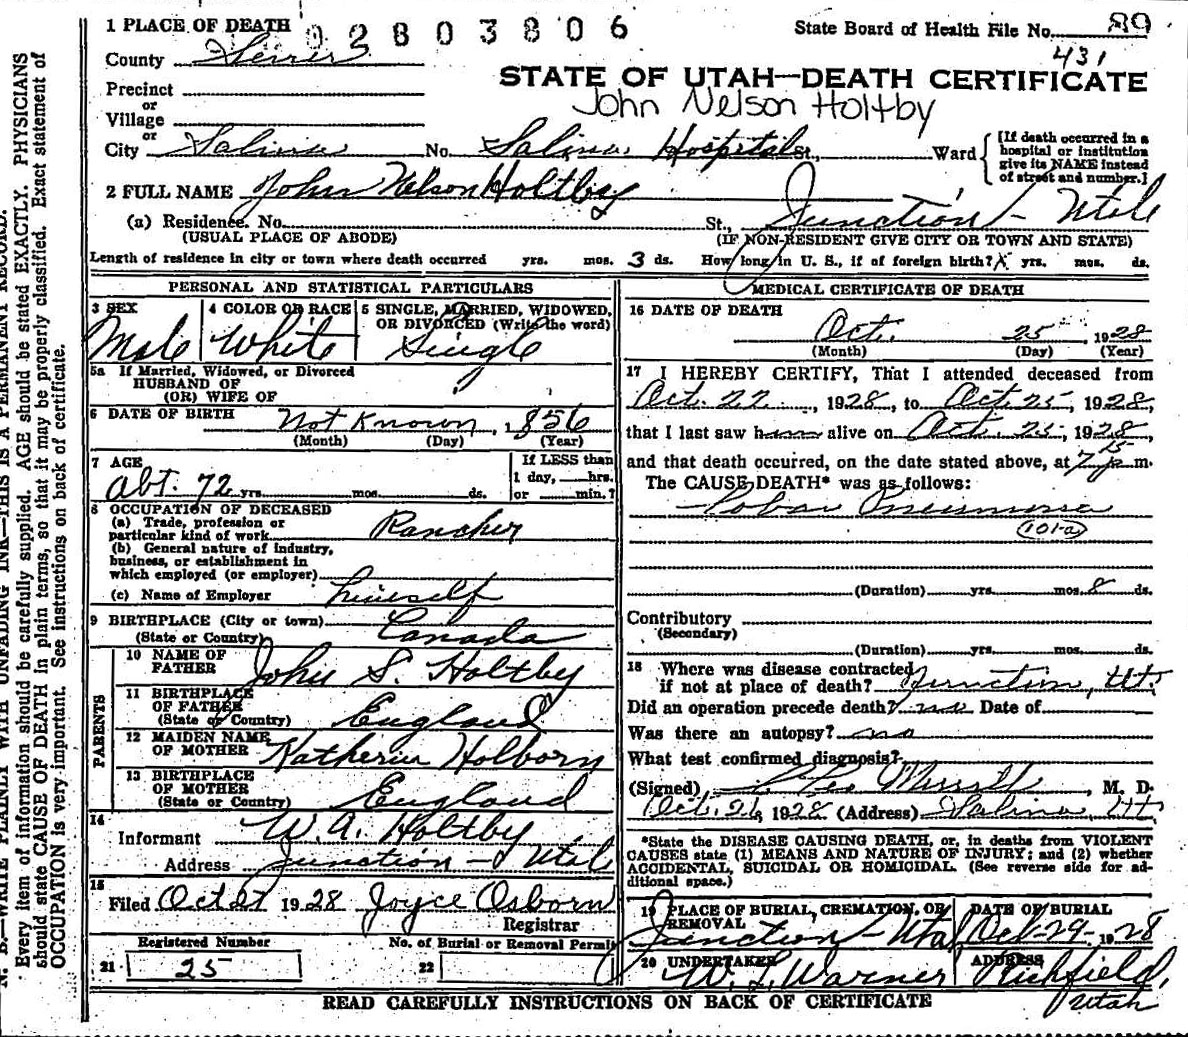 1 PLACE OF DEATH 92803806 State Board of Health File No. 89
County Sevier 431
STATE OF UTAH—DEATH CERTIFICATE
Precinct
or
John Nelson Holtby
Village
or
City Salina No. Salina Hospital St., Ward [If death occurred in a hospital or institution give its NAME instead of street and number.]
2 FULL NAME John Nelson Holtby
(a) Residence. No. St., Junction - Utah
(USUAL PLACE OF ABODE) (IF NON-RESIDENT GIVE CITY OR TOWN AND STATE)
Length of residence in city or town where death occurred yrs. mos. 3 ds. How long in U. S., if of foreign birth? X yrs. mos. ds.
PERSONAL AND STATISTICAL PARTICULARS
3 SEX 4 COLOR OR RACE 5 SINGLE, MARRIED, WIDOWED,
OR DIVORCED (Write the word)
Male White Single
5a If Married, Widowed, or Divorced
HUSBAND OF
(OR) WIFE OF
6 DATE OF BIRTH Not Known, 1856
(Month) (Day) (Year)
7 AGE If LESS than
1 day, hrs.
Abt. 72 yrs. mos. ds. or min.?
8 OCCUPATION OF DECEASED
(a) Trade, profession or
particular kind of work Rancher
(b) General nature of industry,
business, or establishment in
which employed (or employer)
(c) Name of Employer himself
9 BIRTHPLACE (City or town)
(State or Country) Canada
PARENTS
10 NAME OF
FATHER John S. Holtby
11 BIRTHPLACE
OF FATHER
(State or Country) England
12 MAIDEN NAME
OF MOTHER Katherin Holborn
13 BIRTHPLACE
OF MOTHER
(State or Country) England
14
Informant W. A. Holtby
Address Junction - Utah
15
Filed Oct 1928 Joyce Osborn
Registrar
Registered Number No. of Burial or Removal Permit
21 25 22
MEDICAL CERTIFICATE OF DEATH
16 DATE OF DEATH
Oct. 25 1928
(Month) (Day) (Year)
17 I HEREBY CERTIFY, That I attended deceased from
Oct. 22, 1928, to Oct 25, 1928,
that I last saw him alive on Oct. 25, 1928,
and that death occurred, on the date stated above, at 7 15 p m.
The CAUSE DEATH* was as follows:
Lobar Pneumonia
(101-a)
(Duration) yrs. mos. 8 ds.
Contributory
(Secondary)
(Duration) yrs. mos. ds.
18 Where was disease contracted
if not at place of death? Junction, Ut.
Did an operation precede death? no Date of
Was there an autopsy? no
What test confirmed diagnosis?
(Signed) Merrill, M. D.
Oct. 26, 1928 (Address) Salina, Ut.
*State the DISEASE CAUSING DEATH, or, in deaths from VIOLENT
CAUSES state (1) MEANS AND NATURE OF INJURY; and (2) whether
ACCIDENTAL, SUICIDAL OR HOMICIDAL. (See reverse side for ad-
ditional space.)
19 PLACE OF BURIAL, CREMATION, OR DATE OF BURIAL
REMOVAL
Junction - Utah Oct-29-1928
20 UNDERTAKER ADDRESS
W. L. Warner Richfield,
Utah
READ CAREFULLY INSTRUCTIONS ON BACK OF CERTIFICATE
N. B.—WRITE PLAINLY WITH UNFADING INK—THIS IS A PERMANENT RECORD.
Every item of information should be carefully supplied. AGE should be stated EXACTLY. PHYSICIANS
should state CAUSE OF DEATH in plain terms, so that it may be properly classified. Exact statement of
OCCUPATION is very important. See instructions on back of certificate.